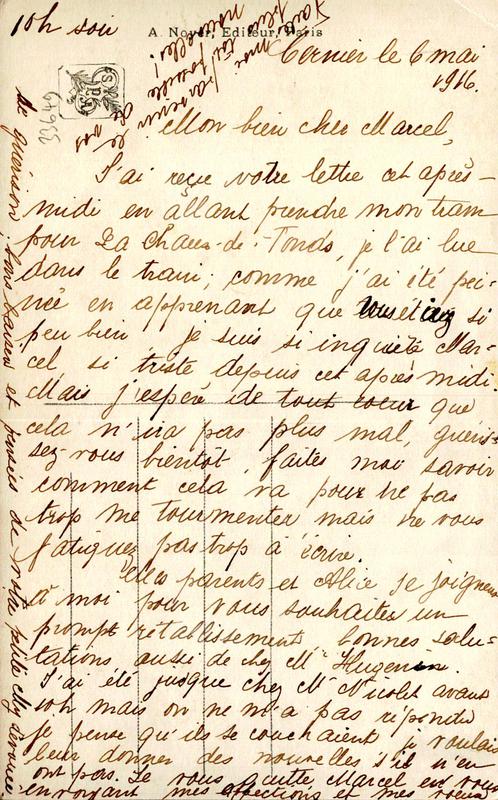 10h soir
A. Noyer, Editeur, Paris
Cernier le 6 mai
1916.
33649
Mon bien cher Marcel,
J'ai reçue votre lettre cet après-
midi en allant prendre mon tram
pour La Chaux-de-Fonds, je l'ai lue
dans le train; comme j'ai été pei-
née en apprenant que vous étiez si
peu bien, je suis si inquiète Mar-
cel, si triste depuis cet après midi.
Mais j'espère de tout cœur que
cela n'ira pas plus mal, guéris-
sez-vous bientôt, faites moi savoir
comment cela va pour ne pas
trop me tourmenter mais ne vous
fatiguez pas trop à écrire.
Mes parents et Alice se joignent
à moi pour vous souhaiter un
prompt rétablissement bonnes salu-
tations aussi de chez Mr Hugenin.
J'ai été jusque chez Mr Nicolet avant
10h mais on ne m'a pas répondu
je pense qu'ils se couchaient je voulais
leur donner des nouvelles s'il n'en
ont pas. Je vous quitte Marcel en vous
envoyant mes affections et mes vœux
de guérison, bons baisers et pensées de votre petite
parvenir
possible de vos
nouvelles!